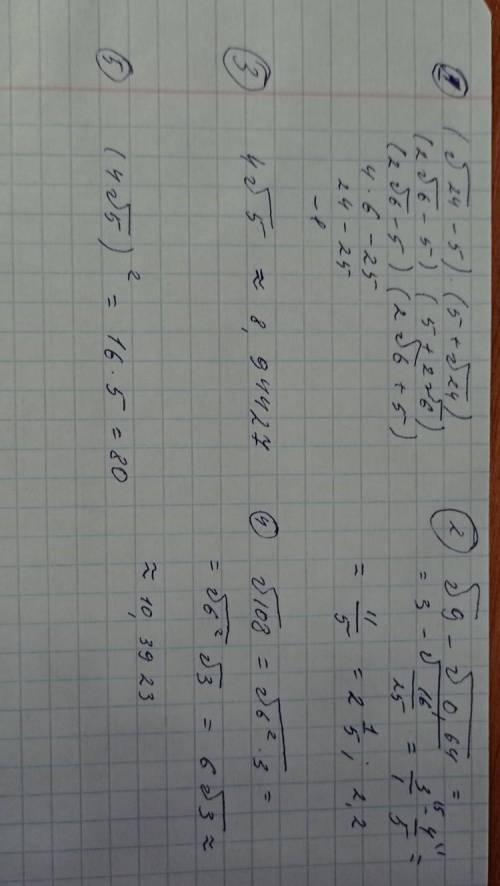 ① (√24 - 5) · (5 + √24)
(2√6 - 5) (5 + 2√6)
(2√6 - 5) (2√6 + 5)
4 · 6 - 25
24 - 25
-1
② √9 - √0,64 =
= 3 - √(16/25) = 3/1 - 4/5 =
= 11/5 = 2 1/5; 2,2
③ 4√5 ≈ 8,94427
④ √108 = √(6² · 3) =
= √6² √3 = 6√3 ≈
≈ 10,3923
⑤ (4√5)² = 16 · 5 = 80